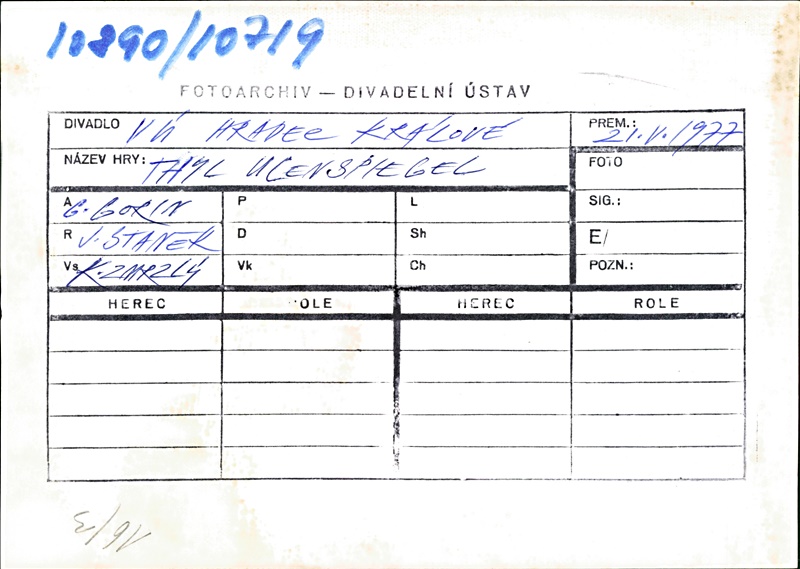 10890/10719
FOTOARCHIV — DIVADELNÍ ÚSTAV
DIVADLO VN HRADEC KRÁLOVÉ PREM.: 21.V.1977
NÁZEV HRY: THYL ULENSPIEGEL FOTO
A G. GORIN P L SIG.:
R J. STANEK D Sh E/
Vs K. ZMRZLÝ Vk Ch POZN.:
HEREC OLE HEREC ROLE
16/3